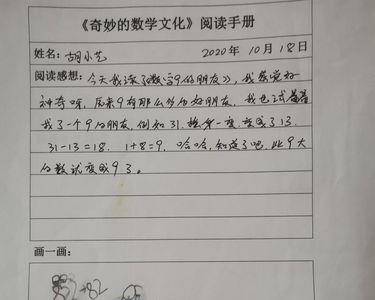 《奇妙的数学文化》阅读手册
姓名：胡小艺 2020年10月18日
阅读感想：今天我读了《数字9的朋友》，我感觉好
神奇呀，原来9有那么多的好朋友，我也试着
找了一个9的朋友，例如31，摇身一变，变成了13，
31-13=18，1+8=9，哈哈，知道了吧，比9大
的数试变成9了。
画一画：